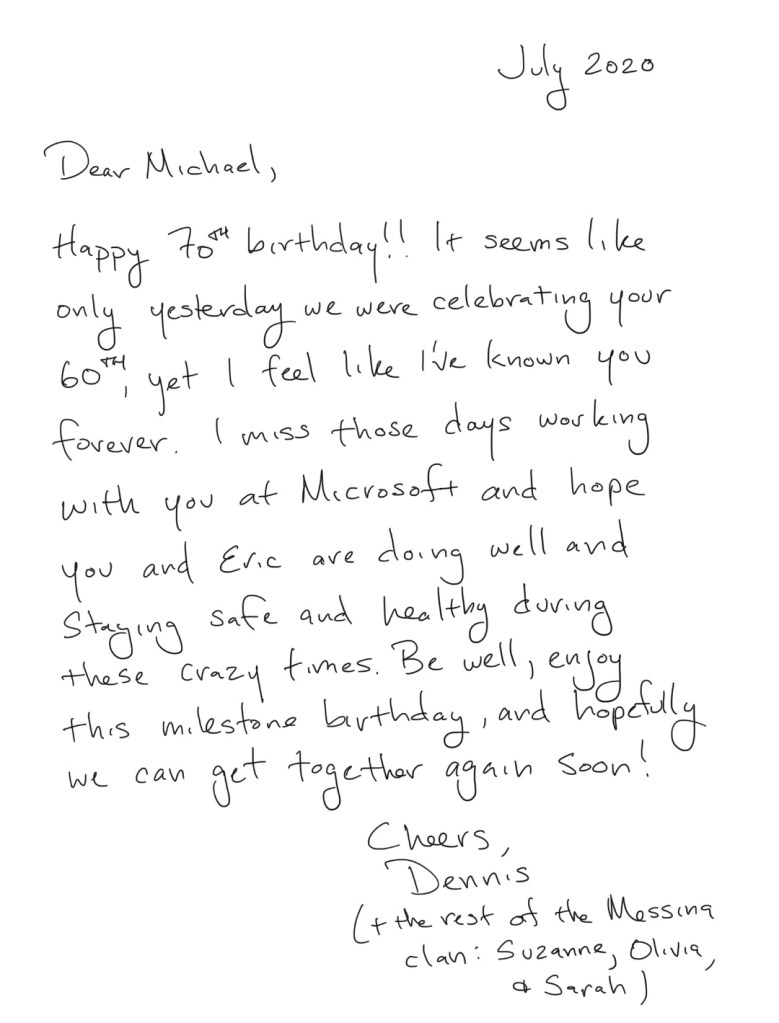 July 2020
Dear Michael,
Happy 70TH birthday!! It seems like
only yesterday we were celebrating your
60TH, yet I feel like I've known you
forever. I miss those days working
with you at Microsoft and hope
you and Eric are doing well and
Staying safe and healthy during
these crazy times. Be well, enjoy
this milestone birthday, and hopefully
we can get together again soon!
Cheers,
Dennis
(+ the rest of the Messina
clan: Suzanne, Olivia,
& Sarah)